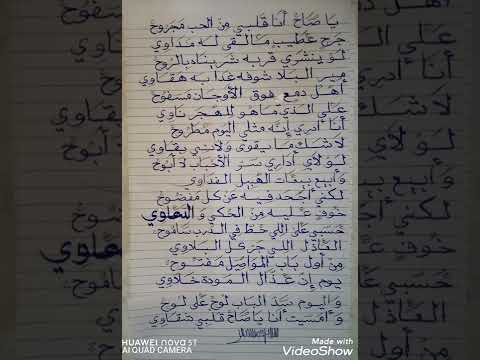 يا صاح أنا قلبي من الحب مجروح
جرح عطيب ما لقى له مداوي
لو ينشري قربه شريناه بالروح
مير البلا شوفه غدا به هقاوي
أهل دمع فوق الأوجان مسفوح
على الذي ما هو للهجر ناوي
أنا أدري إنه مثلي اليوم مطروح
لا شك ما يقوى ولاني بقاوي
لولاي أداري ستر الأحباب لا أبوح
وأبيح بيحات الهبيل الفداوي
لكني أجحد فيه عن كل مفضوح
خوف عليه من الحكي والتعلوي
حسبي على اللي حط في الدرب ساموح
العاذل اللي جر كل البلاوي
من أول باب المواصيل مفتوح
يوم إن عذال المودة خلاوي
واليوم سد الباب لوح على لوح
وأمسيت أنا يا صاح قلبي شقاوي
HUAWEI nova 5T
AI QUAD CAMERA
Made with
VideoShow